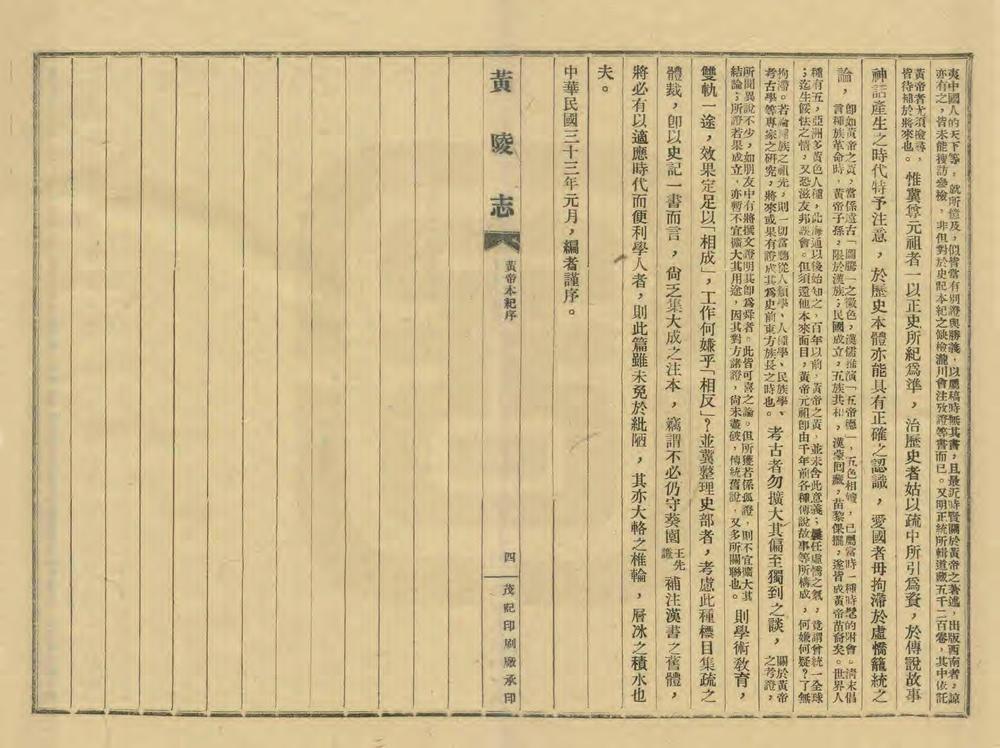 夷中國人的天下等，就所憶及，似皆當有別證與勝義，以屬稿時無其書，且最近時賢關於黃帝之著述，出版西南者，諒
亦有之，皆未能搜訪參檢，非但對於史記本紀之缺檢瀧川會注攷證等書而已。又明正統所輯道藏五千二百卷，其中依託
黃帝者尤須檢尋，
皆待補於將來也。
惟冀尊元祖者一以正史所紀爲準，治歷史者姑以疏中所引爲資，於傳說故事
神話產生之時代特予注意，於歷史本體亦能具有正確之認識，愛國者毋拘滯於虛憍籠統之
論，
卽如黃帝之黃，當係遠古「圖騰」之徽色，漢儒推演「五帝德」，五色相嬗，已屬當時一種時髦的附會。淸末倡
言種族革命時，黃帝子孫，限於漢族；民國成立，五族共和，漢蒙回藏，苗黎倮擺，遂皆成黃帝苗裔矣。世界人
種有五，亞洲多黃色人種，此海通以後始知之，百年以前，黃帝之黃，並未含此意義；任虛憍之氣，竟謂曾統一全球
；迄生餒怯之情，又恐滋友邦誤會。但須還他本來面目，黃帝元祖卽由千年前各種傳說故事等所構成，何嫌何疑？了無
拘滯。若論種族之祖先，則一切當聽從人類學、人種學、民族學、
考古學等專家之研究，將來或果有證成其爲史前東方族長之時也。
考古者勿擴大其偏至獨到之談，
關於黃帝
之考證，
所聞異說不少，如朋友中有將撰文證明其卽爲舜者。此皆可喜之論。但所獲若係孤證，則不宜擴大其
結論；所證若果成立，亦暫不宜擴大其用途，因其對方諸證，尙未盡破，傳統舊說，又多所關聯也。
則學術敎育，
雙軌一途，效果定足以「相成」，工作何嫌乎「相反」？並冀整理史部者，考慮此種標目集疏之
體裁，卽以史記一書而言，尙乏集大成之注本，竊謂不必仍守葵園
王先
謙
補注漢書之舊體，
將必有以適應時代而便利學人者，則此篇雖未免於紕陋，其亦大輅之椎輪，層冰之積水也
夫。
中華民國三十三年元月，編者謹序。
黃陵志
黃帝本紀序
四
茂記印刷廠承印